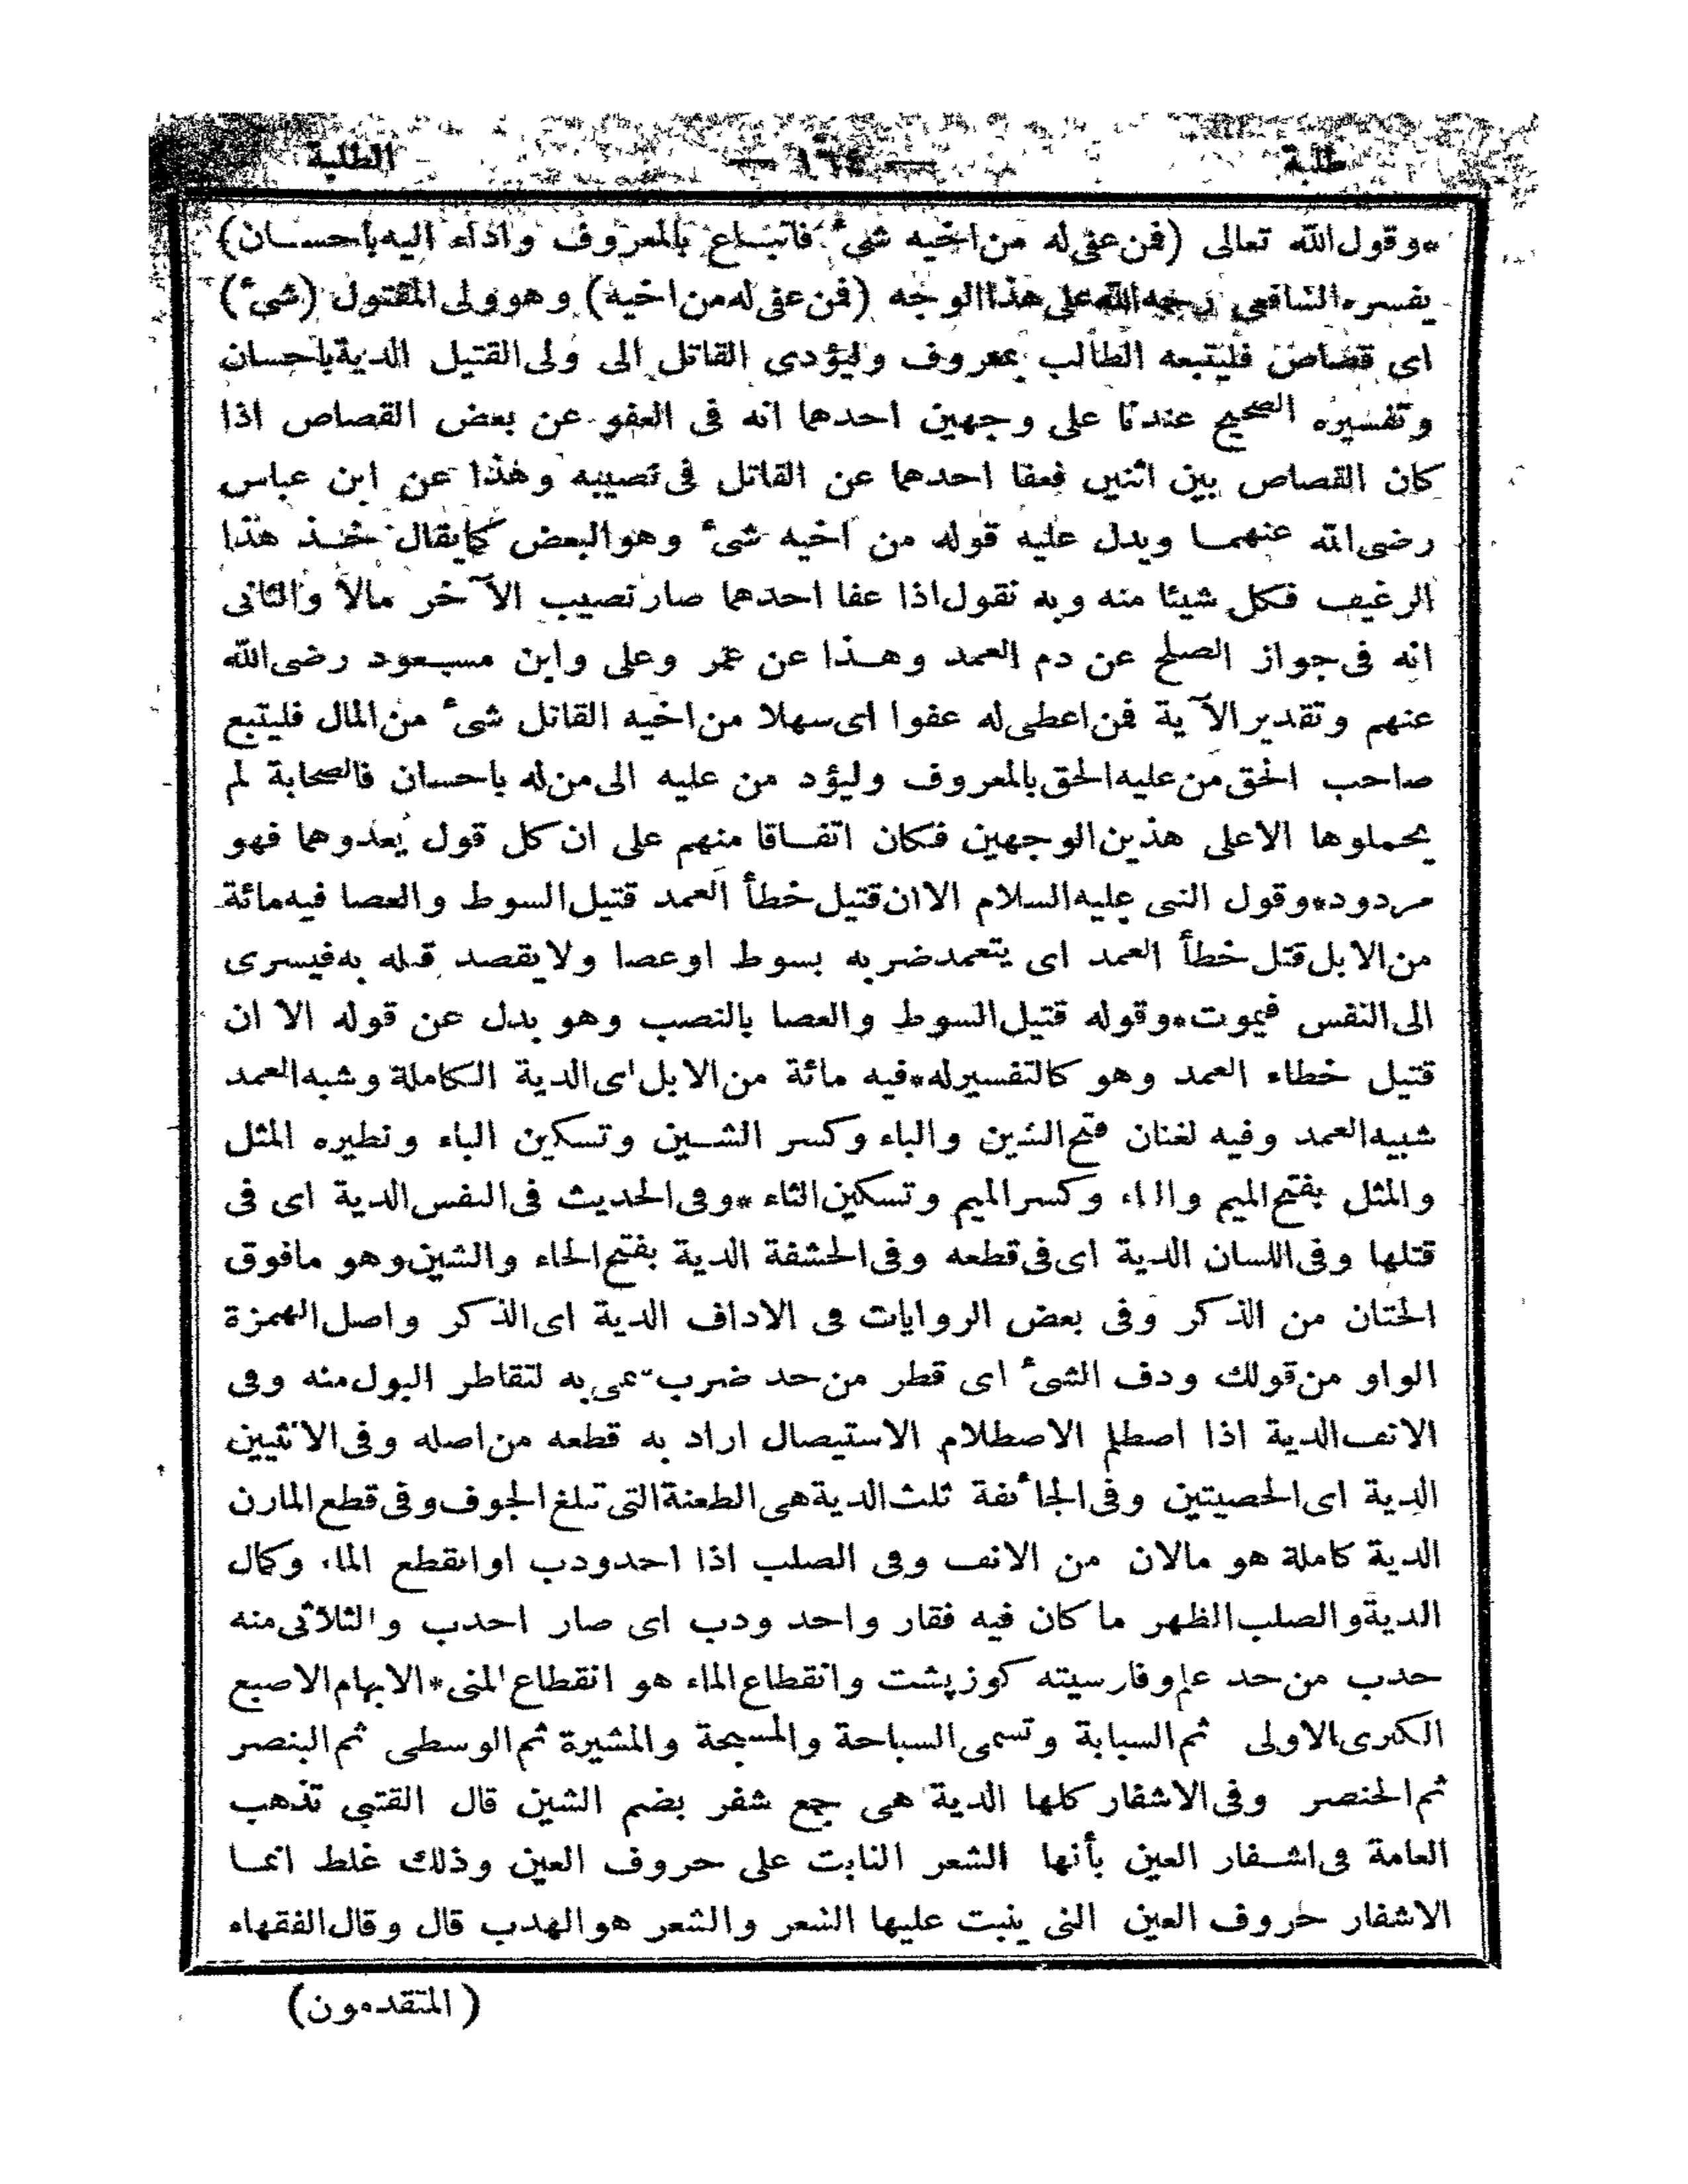 طلبة — ١٦٤ — الطلبة
*وقول الله تعالى (فمن عفى له من اخيه شىء فاتباع بالمعروف واداء اليه باحسان)
يفسره الشافعى رحمه الله على هذا الوجه (فمن عفى له من اخيه) وهو ولى المقتول (شىء)
اى قصاص فليتبعه الطالب بمعروف وليؤدى القاتل الى ولى القتيل الدية باحسان
وتفسيره الصحيح عندنا على وجهين احدهما انه فى العفو عن بعض القصاص اذا
كان القصاص بين اثنين فعفا احدهما عن القاتل فى نصيبه وهذا عن ابن عباس
رضى الله عنهما ويدل عليه قوله من اخيه شىء وهو البعض كما يقال خذ هذا
الرغيف فكل شيئا منه وبه نقول اذا عفا احدهما صار نصيب الآخر مالا والثانى
انه فى جواز الصلح عن دم العمد وهذا عن عمر وعلى وابن مسعود رضى الله
عنهم وتقدير الآية فمن اعطى له عفوا اى سهلا من اخيه القاتل شىء من المال فليتبع
صاحب الحق من عليه الحق بالمعروف وليؤد من عليه الى من له باحسان فالصحابة لم
يحملوها الا على هذين الوجهين فكان اتفاقا منهم على ان كل قول يعدوهما فهو
مردود*وقول النبى عليه السلام الا ان قتيل خطأ العمد قتيل السوط والعصا فيه مائة
من الابل قتل خطأ العمد اى يتعمد ضربه بسوط او عصا ولا يقصد قتله به فيسرى
الى النفس فيموت*وقوله قتيل السوط والعصا بالنصب وهو بدل عن قوله الا ان
قتيل خطاء العمد وهو كالتفسير له*فيه مائة من الابل اى الدية الكاملة وشبه العمد
شبيه العمد وفيه لغتان فتح الشين والباء وكسر الشين وتسكين الباء ونظيره المثل
والمثل بفتح الميم والثاء وكسر الميم وتسكين الثاء *وفى الحديث فى النفس الدية اى فى
قتلها وفى اللسان الدية اى فى قطعه وفى الحشفة الدية بفتح الحاء والشين وهو مافوق
الختان من الذكر وفى بعض الروايات فى الاداف الدية اى الذكر واصل الهمزة
الواو من قولك ودف الشىء اى قطر من حد ضرب سمى به لتقاطر البول منه وفى
الانف الدية اذا اصطلم الاصطلام الاستيصال اراد به قطعه من اصله وفى الانثيين
الدية اى الخصيتين وفى الجائفة ثلث الدية هى الطعنة التى تبلغ الجوف وفى قطع المارن
الدية كاملة هو مالان من الانف وفى الصلب اذا احدودب او انقطع الماء وكمال
الدية والصلب الظهر ما كان فيه فقار واحد ودب اى صار احدب والثلاثى منه
حدب من حد علم وفارسيته كوز پشت وانقطاع الماء هو انقطاع المنى*الابهام الاصبع
الكبرى الاولى ثم السبابة وتسمى السباحة والمسبحة والمشيرة ثم الوسطى ثم البنصر
ثم الخنصر وفى الاشفار كلها الدية هى جمع شفر بضم الشين قال القتبى تذهب
العامة فى اشفار العين بأنها الشعر النابت على حروف العين وذلك غلط انما
الاشفار حروف العين التى ينبت عليها الشعر والشعر هو الهدب قال وقال الفقهاء
(المتقدمون)